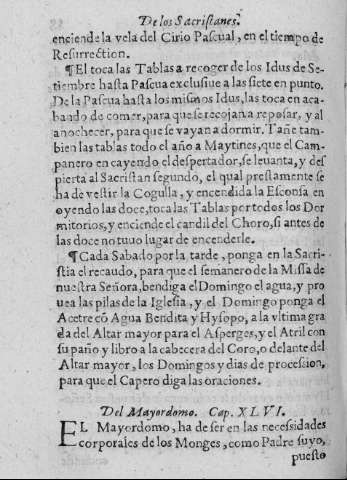 De los Sacristanes.
enciende la vela del Cirio Pascual, en el tiempo de
Resurrection.
¶ El toca las Tablas a recoger de los Idus de Se-
tiembre hasta Pascua exclusiue a las siete en punto.
De la Pascua hasta los mismos Idus, las toca en aca-
bando de comer, para que se recojan a reposar, y al
anochecer, para que se vayan a dormir. Tañe tam-
bien las tablas todo el año a Maytines, que el Cam-
panero en cayendo el despertador, se leuanta, y des
pierta al Sacristan segundo, el qual prestamente se
ha de vestir la Cogulla, y encendida la Esconsa en
oyendo las doce, toca las Tablas por todos los Dor
mitorios, y enciende el candil del Choro, si antes de
las doce no tuuo lugar de encenderle.
¶ Cada Sabado por la tarde, ponga en la Sacri-
stia el recaudo, para que el semanero de la Missa de
nuestra Señora, bendiga el Domingo el agua, y pro
uea las pilas de la Iglesia, y el Domingo ponga el
Acetre cō Agua Bendita y Hysopo, a la vltima gra
da del Altar mayor para el Asperges, y el Atril con
su paño y libro a la cabecera del Coro, o delante del
Altar mayor, los Domingos y dias de procession,
para que el Capero diga las oraciones.
Del Mayordomo. Cap. XLVI.
EL Mayordomo, ha de ser en las necessidades
corporales de los Monges, como Padre suyo,
puesto